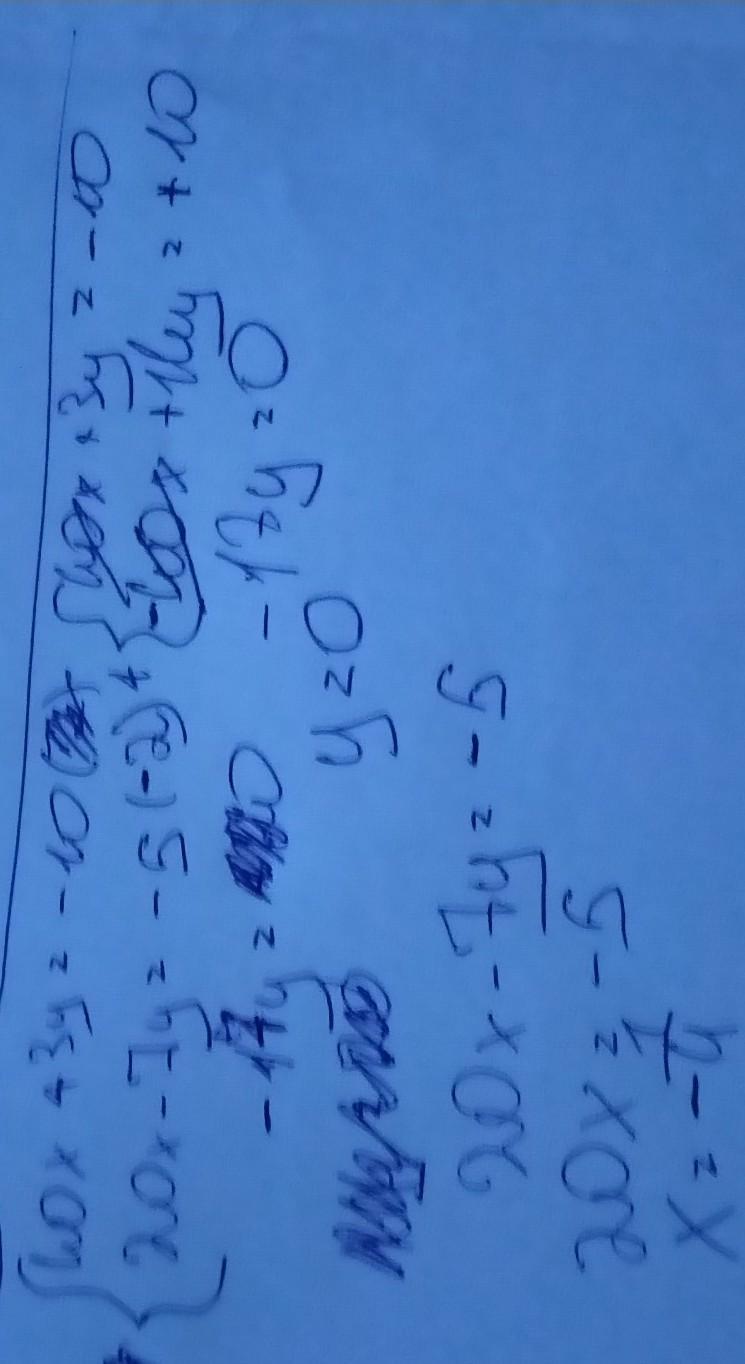 40x + 3y = -10
20x - 7y = -5 (-2) +
40x + 3y = -10
-40x + 14y = +10
-17y = 0
-17y = 0
y = 0
20x - 7y = -5
20x = -5
x = -1/4